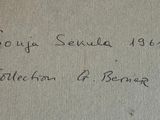 onja Sekula 196
ollection G. Berner